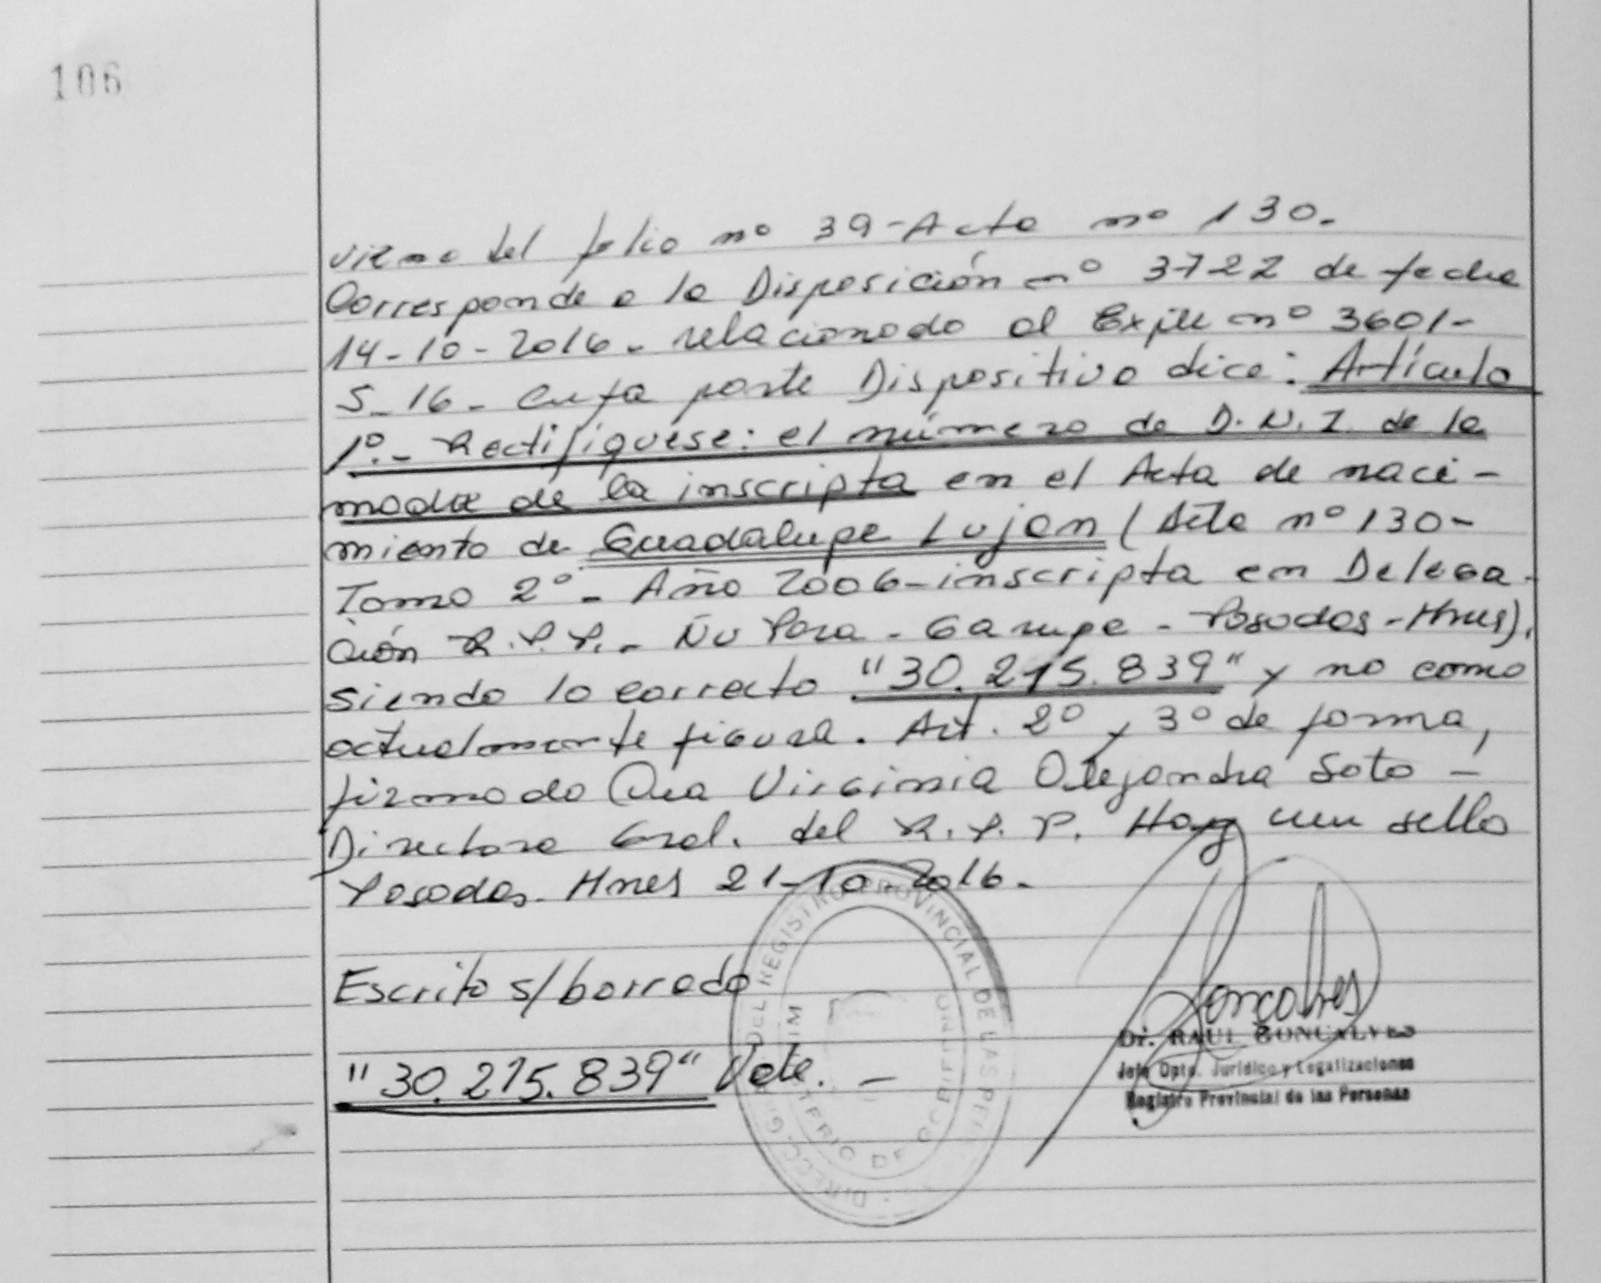 106
viene del folio nº 39-Acta nº 130.
Corresponde a la Disposición nº 3722 de fecha
14-10-2016- relacionado al Expte nº 3601-
S-16- Cuya parte Dispositiva dice: Artículo
1º.- Rectifíquese: el número de D.N.I. de la
madre de la inscripta en el Acta de naci-
miento de Guadalupe Lujan (Acta nº 130-
Tomo 2º- Año 2006-inscripta en Delega-
ción R.P.P.- Ñu Pora - Garupa - Posadas-Mnes),
siendo lo correcto "30.215.839" y no como
actualmente figura. Art. 2º y 3º de forma,
firmado Dra Virginia Alejandra Soto -
Directora Gral. del R.P.P. Hay un sello
Posadas. Mnes 21-10-2016.
Escrito s/borrado
"30.215.839" Vale. -
DIRECC. GRAL. DEL REGISTRO PROVINCIAL DE LAS PER
MINISTERIO DE GOBIERNO
Goncalves
Dr. RAUL GONCALVES
Jefe Dpto. Jurídico y Legalizaciones
Registro Provincial de las Personas